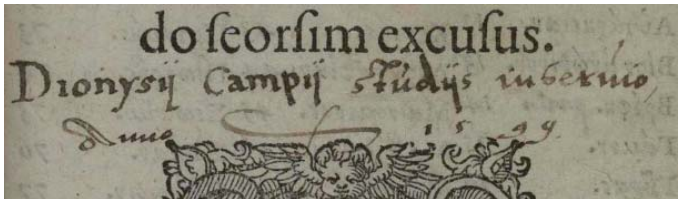 do ſeorſim excuſus.
Dionysij Campij studijs inservio,
Anno 1599